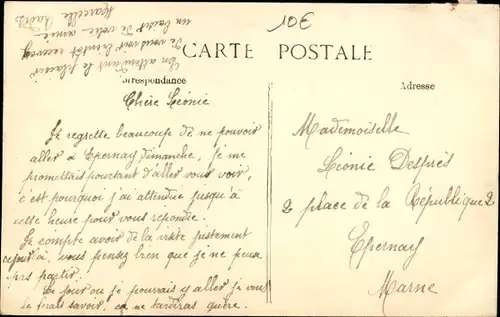 10€
CARTE POSTALE
Correspondance
Adresse
Chère Léonie
Je regrette beaucoup de ne pouvoir
aller à Epernay Dimanche, je me
promettais pourtant d'aller vous voir,
c'est pourquoi j'ai attendue jusqu'à
cette heure pour vous repondre.
Je compte avoir de la visite justement
ce jour là, vous pensez bien que je ne peux
pas partir.
Le jour ou je pourrais y aller je vous
le ferais savoir, ca ne tardera guère.
En attendant le plaisir
de vous voir bientôt recevez
un baiser de votre amie
Marcelle
Mademoiselle
Léonie Després
2 place de la République 2
Epernay
Marne